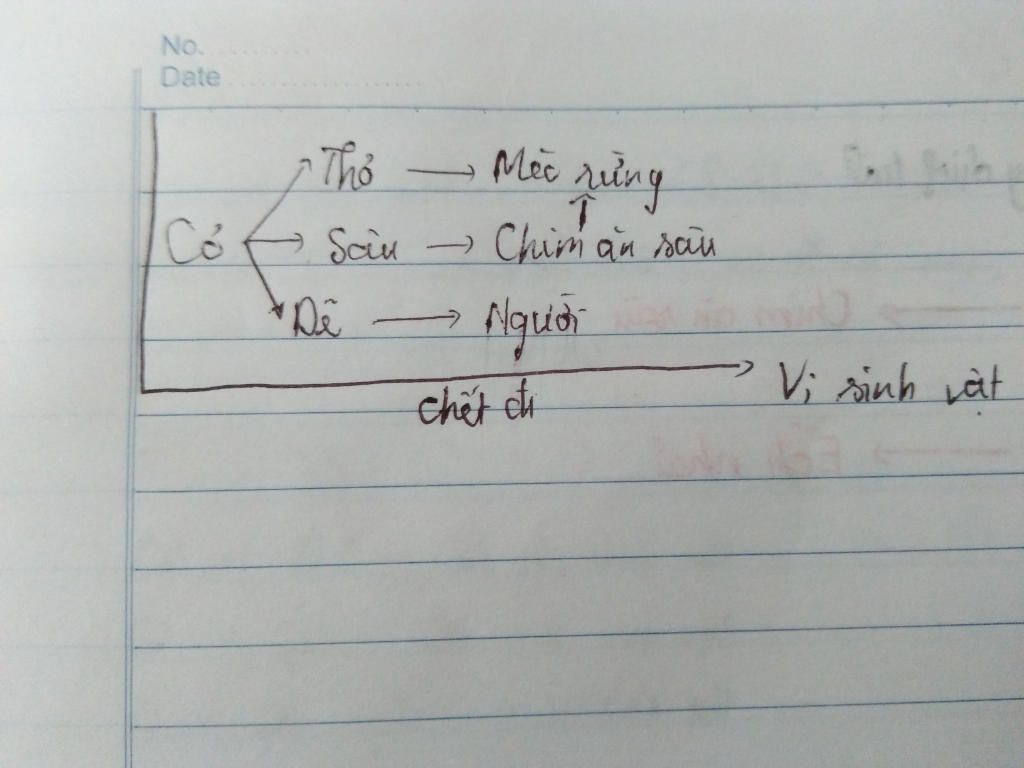 No.
Date
Thỏ → Mèo rừng
Cỏ → Sâu → Chim ăn sâu
Dê → Người
chết đi → Vi sinh vật